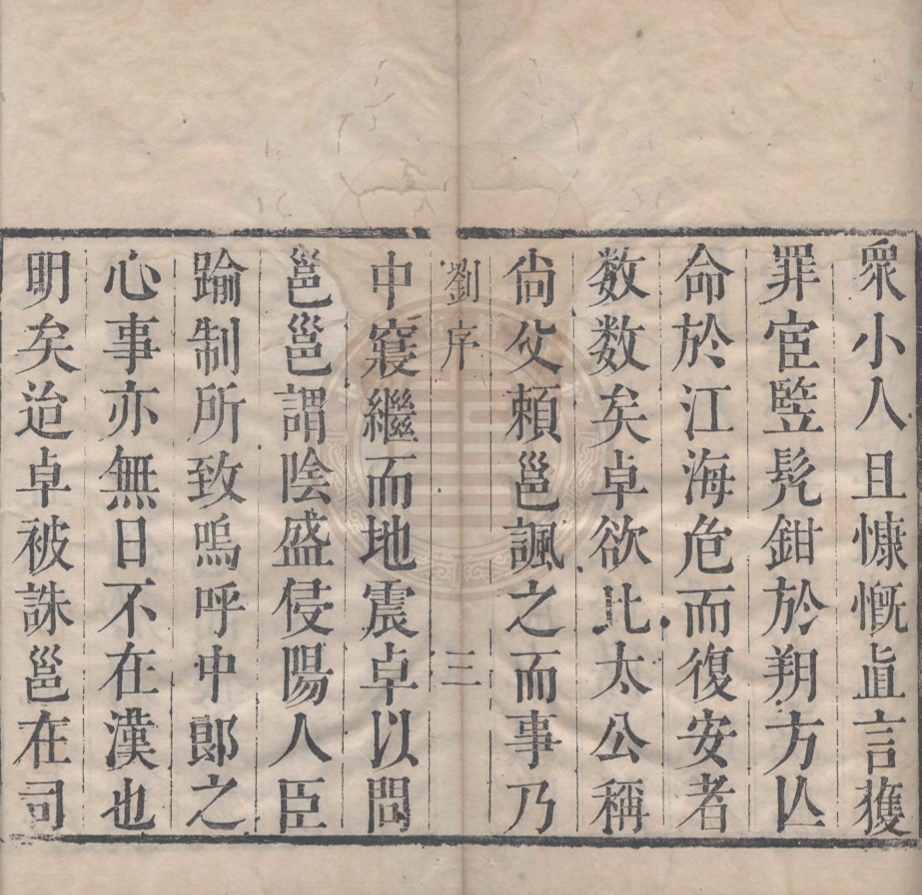 衆小人且慷慨直言獲
罪宦豎髠鉗於朔方亾
命於江海危而復安者
数数矣卓欲比太公稱
尙父頼邕諷之而事乃
劉序 三
中寢繼而地震卓以問
邕邕謂陰盛侵陽人臣
踰制所致嗚呼中郎之
心事亦無日不在漢也
明矣迨卓被誅邕在司